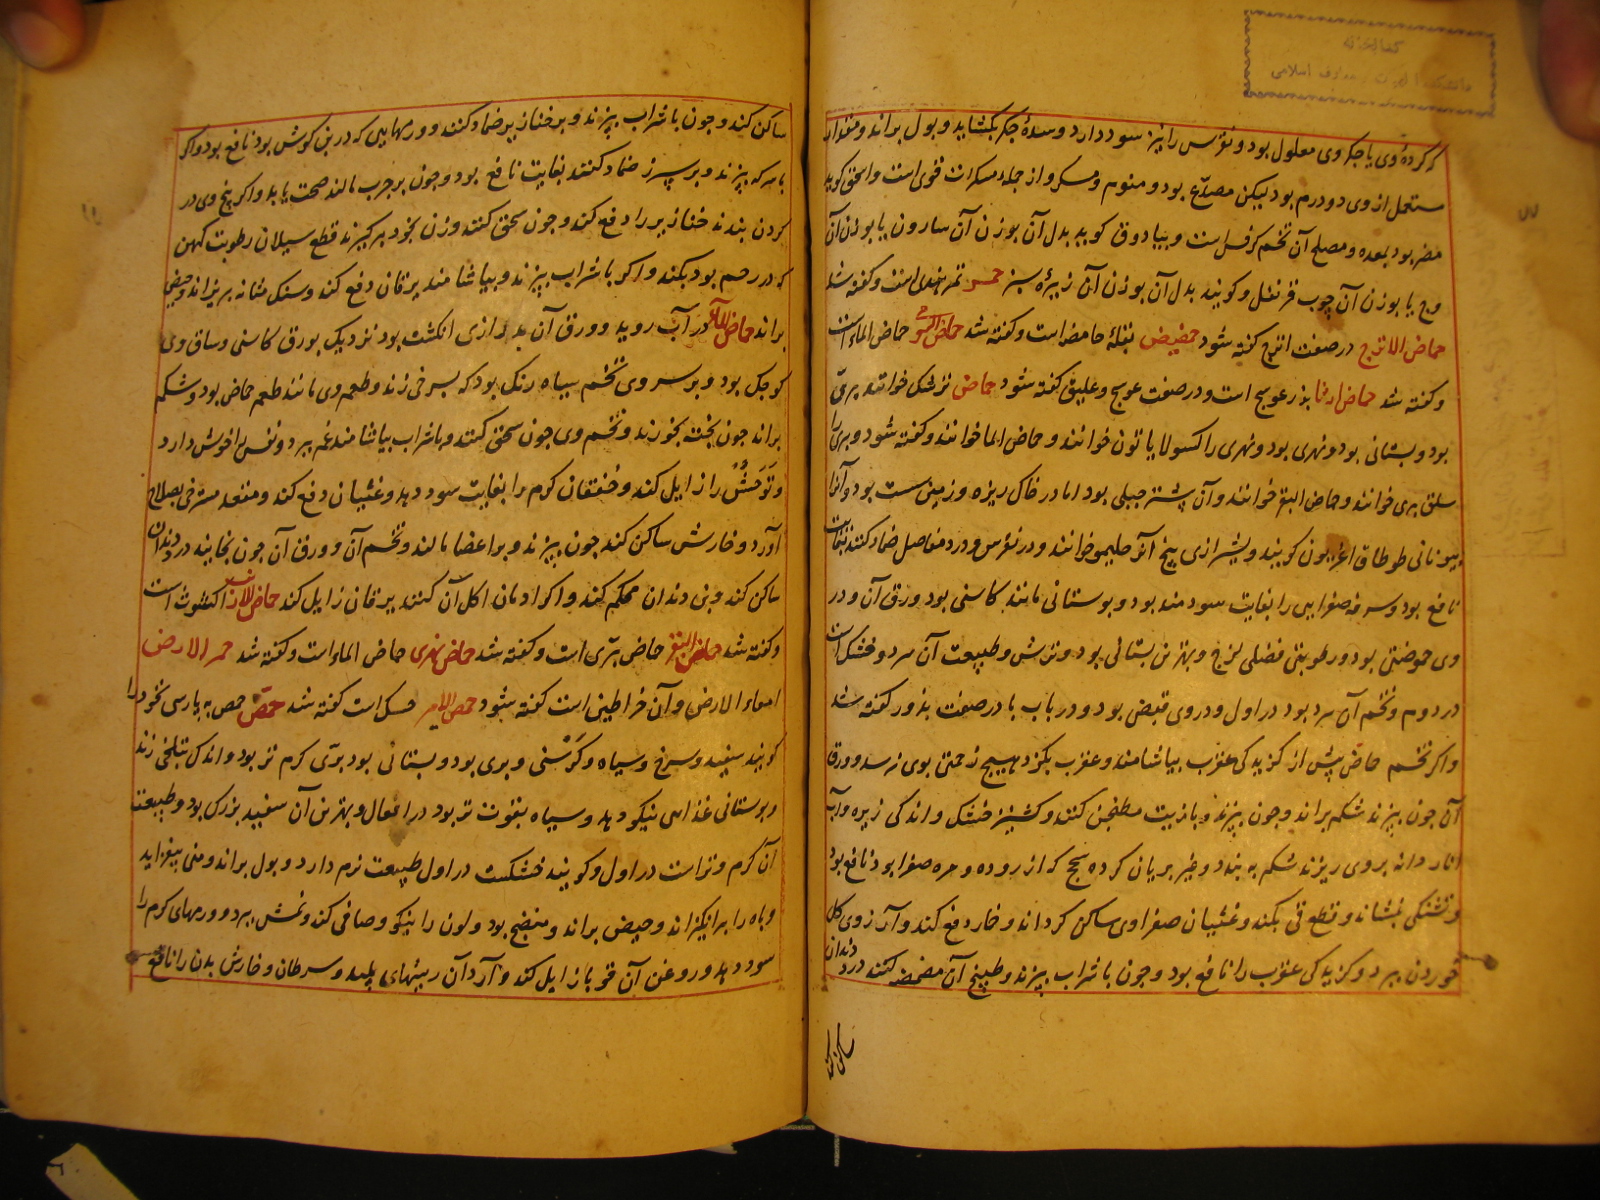 کتابخانه
دانشکده الهیات و معارف اسلامی
که کرده وی یا جگر وی معلول بود و نقرس را نیز سود دارد و سده جگر بگشاید و بول براند و مقدار
مستعمل از وی دو درم بود لیکن مصدّع بود و منوم و مسکر و از جمله مسکرات قوی است و اسحق گوید
مضر بود بمعده و مصلح آن تخم کرفس است و بیادوق گوید بدل آن بوزن آن سارون یا بوزن آن
وج یا بوزن آن چوب قرنفل و گویند بدل آن بوزن آن زیره سبز حمر تمر هندی است و گفته شد
حماض الاترج در صفت اترج گفته شود حمضیض بقله حامضه است و گفته شد حماض حماض الماء است
و گفته شد حماض بذر عوسج است و در صفت عوسج و علیق گفته شود حماض ترشک خوانند برّی
بود و بستانی بود و نهری بود و نهری را اکسولایاثون خوانند و حماض الما خوانند و گفته شود و بری را
سلق بری خوانند و حماض البقر خوانند و آن پشتر جبلی بود اما در خاک ریزه و زمین سست بود و آنرا
بیونانی طوطاق اغریون گویند و بشیرازی بیخ آنرا حلیمو خوانند و در نقرس و درد مفاصل ضماد کنند بغایت
نافع بود و سرفه صفرایی را بغایت سودمند بود و بوستانی مانند کاسنی بود ورق آن و در
وی حموضتی بود و رطوبتی فضلی لزج و بهترین بستانی بود و ترش و طبیعت آن سرد و خشک است
در دوم و تخم آن سرد بود در اول و در وی قبض بود و در باب با در صفت بذور گفته شد
و اگر تخم حماض پیش از گزیدگی عقرب بیاشامند و عقرب بگزد هیچ زحمتی بوی نرسد و ورق
آن چون بپزند شکم براند و چون بپزند و بازیت مطجن کنند و کشنیز خشک و اندکی زیره و آب
انار دانه بر وی ریزند شکم به بندد و غیر بریان کرده سحج که از روده و مره صفرا بود نافع بود
و تشنگی بنشاند و قطع قی بکند و غشیان صفراوی ساکن گرداند و خمار دفع کند و آرزوی گل
خوردن ببرد و گزیدگی عقرب را نافع بود و چون با شراب بپزند و طبیخ آن مضمضه کنند درد دندان
ساکن کند
ساکن کند و چون با شراب بپزند و بر خنازیر ضماد کنند و ورمهایی که در بن گوش بود نافع بود و اگر
با سرکه بپزند و بر سپرز ضماد کنند بغایت نافع بود و چون بر جرب مالند صحت یابد و اگر بیخ وی در
گردن بندند خنازیر را دفع کند و چون سحق کنند و زن بخود برگیرند قطع سیلان رطوبت کهن
که در رحم بود بکند و اگر با شراب بپزند و بیاشامند یرقان دفع کند و سنک مثانه بریزاند و حیض
براند حماض الماء در آب روید و ورق آن به درازی انگشت بود نزدیک بورق کاسنی و ساق وی
کوچک بود و بر سر وی تخم سیاه رنگ بود که بسرخی زند و طعم وی مانند طعم حماض بود و شکم
براند چون پخته بخورند و تخم وی چون سحق کنند و با شراب بیاشامند غم ببرد و نفس را خوش دارد
و تَوَحُش را زایل کند و خفقان گرم را بغایت سود دهد و غشیان دفع کند و مقعد مسترخی بصلاح
آورد و خارش ساکن کند چون بپزند و بر اعضا مالند و تخم آن و ورق آن چون بخایند درد دندان
ساکن کند و بن دندان محکم کند و اگر ادمان اکل آن کنند یرقان زایل کند حماض الارنب اکشوث است
و گفته شد حماض البقر حماض برّی است و گفته شد حماض نهری حماض الماء است و گفته شد حمر الارض
امعاء الارض و آن خراطین است گفته شود حمص الامیر حسک است گفته شد حمّص حمص به پارسی نخود را
گویند سفید و سرخ و سیاه و کرسنی و بری بود و بستانی بود برّی گرم تر بود و اندک بتلخی زند
و بوستانی غذا نیکو دهد و سیاه بقوت تر بود در افعال و بهترین آن سفید بزرگ بود و طبیعت
آن گرم و تر است در اول و گویند خشکست در اول طبیعت نرم دارد و بول براند و منی بیفزاید
و باه را برانگیزاند و حیض براند و منضج بود و لون را نیکو و صافی کند و نمش ببرد و ورمهای گرم را
سود دهد و روغن آن قوبا زایل کند و آرد آن ریشهای پلید و سرطان و خارش بدن را نافع